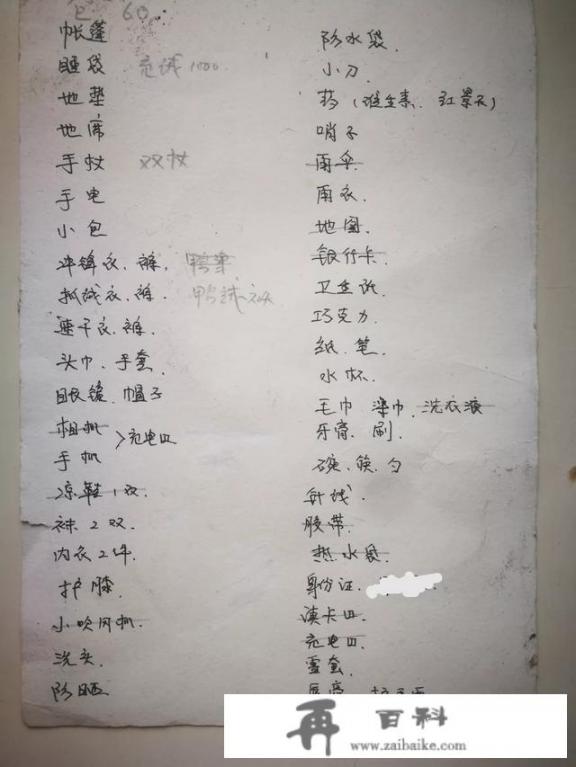 60
帐篷
睡袋 充绒1000
地垫
地席
手杖 双杖
手电
小包
冲锋衣、裤
抓绒衣、裤 鸭绒
速干衣、裤
头巾、手套
眼镜、帽子
相机
>充电四
手机
凉鞋1双
袜2双
内衣2件
护膝
小吹风机
洗头
防晒
防水袋
小刀
药(维生素、红景天)
哨子
雨伞
雨衣
地图
银行卡
卫生纸
巧克力
纸、笔
水杯
毛巾 洗衣液
牙膏、刷
碗、筷、勺
针线
胶带
热水袋
身份证
读卡四
充电四
雪套
再百科
www.zaibaike.com